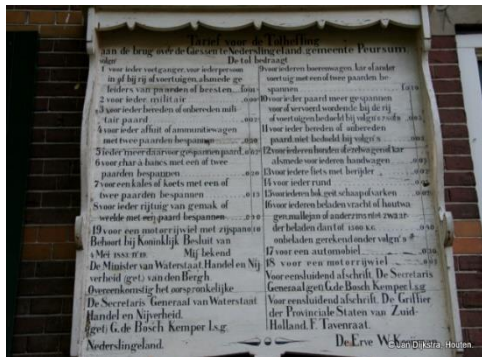 Tarief voor de Tolheffing
aan de brug over de Giessen te Nederslingeland, gemeente Peursum.
volgnr De tol bedraagt
1 voor ieder voetganger, voor ieder persoon
in of bij rij of voertuigen, alsmede ge
leiders van paarden of beesten
2 voor ieder militair
3 voor iederen bereden of onbereden mili
tair paard
4 voor ieder affuit of ammunitiewagen
met twee paarden bespannen
5 ieder meer daarvoor gespannen paard
6 voor char à bancs met een of twee
paarden bespannen
7 voor een kales of koets met een of
twee paarden bespannen
8 voor ieder rijtuig van gemak of
weelde met een paard bespannen
19 voor een motorrijwiel met zijspan
Behoort bij Koninklijk Besluit van
4 Mei Mij bekend
De Minister van Waterstaat, Handel en Nij
verheid (get) van den Bergh.
Overeenkomstig het oorspronkelijke
De Secretaris Generaal van Waterstaat
Handel en Nijverheid.
(get) G. de Bosch Kemper l.s.g.
Nederslingeland.
9 voor iederen boerenwagen, kar of ander
voertuig met een of twee paarden be-
spannen
10 voor ieder paard meer gespannen
voor of vervoerd wordende bij de rij
of voertuigen bedoeld bij volgn's
11 voor ieder bereden of onbereden
paard, niet bedoeld bij volgn's
12 voor iederen honden of ezelwagen of kar
alsmede voor iederen handwagen
13 voor iedere fiets met berijder
14 voor ieder rund
15 voor iederen bok geit schaap of varken
16 voor iederen beladen vracht of houtwa
gen, mallejan of anderzins niet zwaar-
der beladen dan tot 1500 K.G.
onbeladen gerekend onder volgn's 9
17 voor een automobiel
18 voor een motorrijwiel
Voor eensluidend afschrift, De Secretaris
Generaal (get) G. de Bosch Kemper l.s.g.
Voor eensluidend afschrift, De Griffier
der Provinciale Staten van Zuid-
Holland, F. Tavenraat.
De Erve W.
© Jan Dijkstra, Houten.